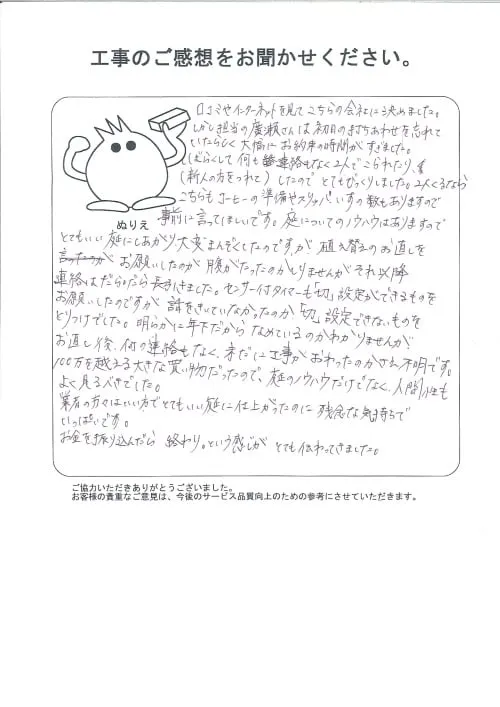 工事のご感想をお聞かせください。
口コミやインターネットを見てこちらの会社に決めました。
しかし担当の廣瀬さんは初日の打ちあわせを忘れて
いたらしく大幅にお約束の時間がすぎました。
しばらくして何も連絡もなく2人でこられたり、
(新人の方をつれて)したのでとてもびっくりしました。2人くるなら
こちらもコーヒーの準備やスリッパいすの数もありますので
ぬりえ
事前に言ってほしいです。庭についてのノウハウはありますので
とてもいい庭にしあがり大変まんぞくしたのですが、植え替えのお直しを
言ったのがお願いしたのが腹がたったのかしりませんがそれ以降
連絡はだらだら長引きました。センサー付タイマーも「切」設定ができるものを
お願いしたのですが話をきいていなかったのか「切」設定できないものを
とりつけでした。明らかに年下だからなめているのかわかりませんが
お直し後、何の連絡もなく、未だに工事がおわったのかさえ不明です。
100万を越える大きな買い物だったので、庭のノウハウだけでなく、人間性も
よく見るべきでした。
業者の方々はいい方でとてもいい庭に仕上がったのに残念な気持ちで
いっぱいです。
お金を振り込んだら終わり。という感じがとても伝わってきました。
ご協力いただきありがとうございました。
お客様の貴重なご意見は、今後のサービス品質向上のための参考にさせていただきます。